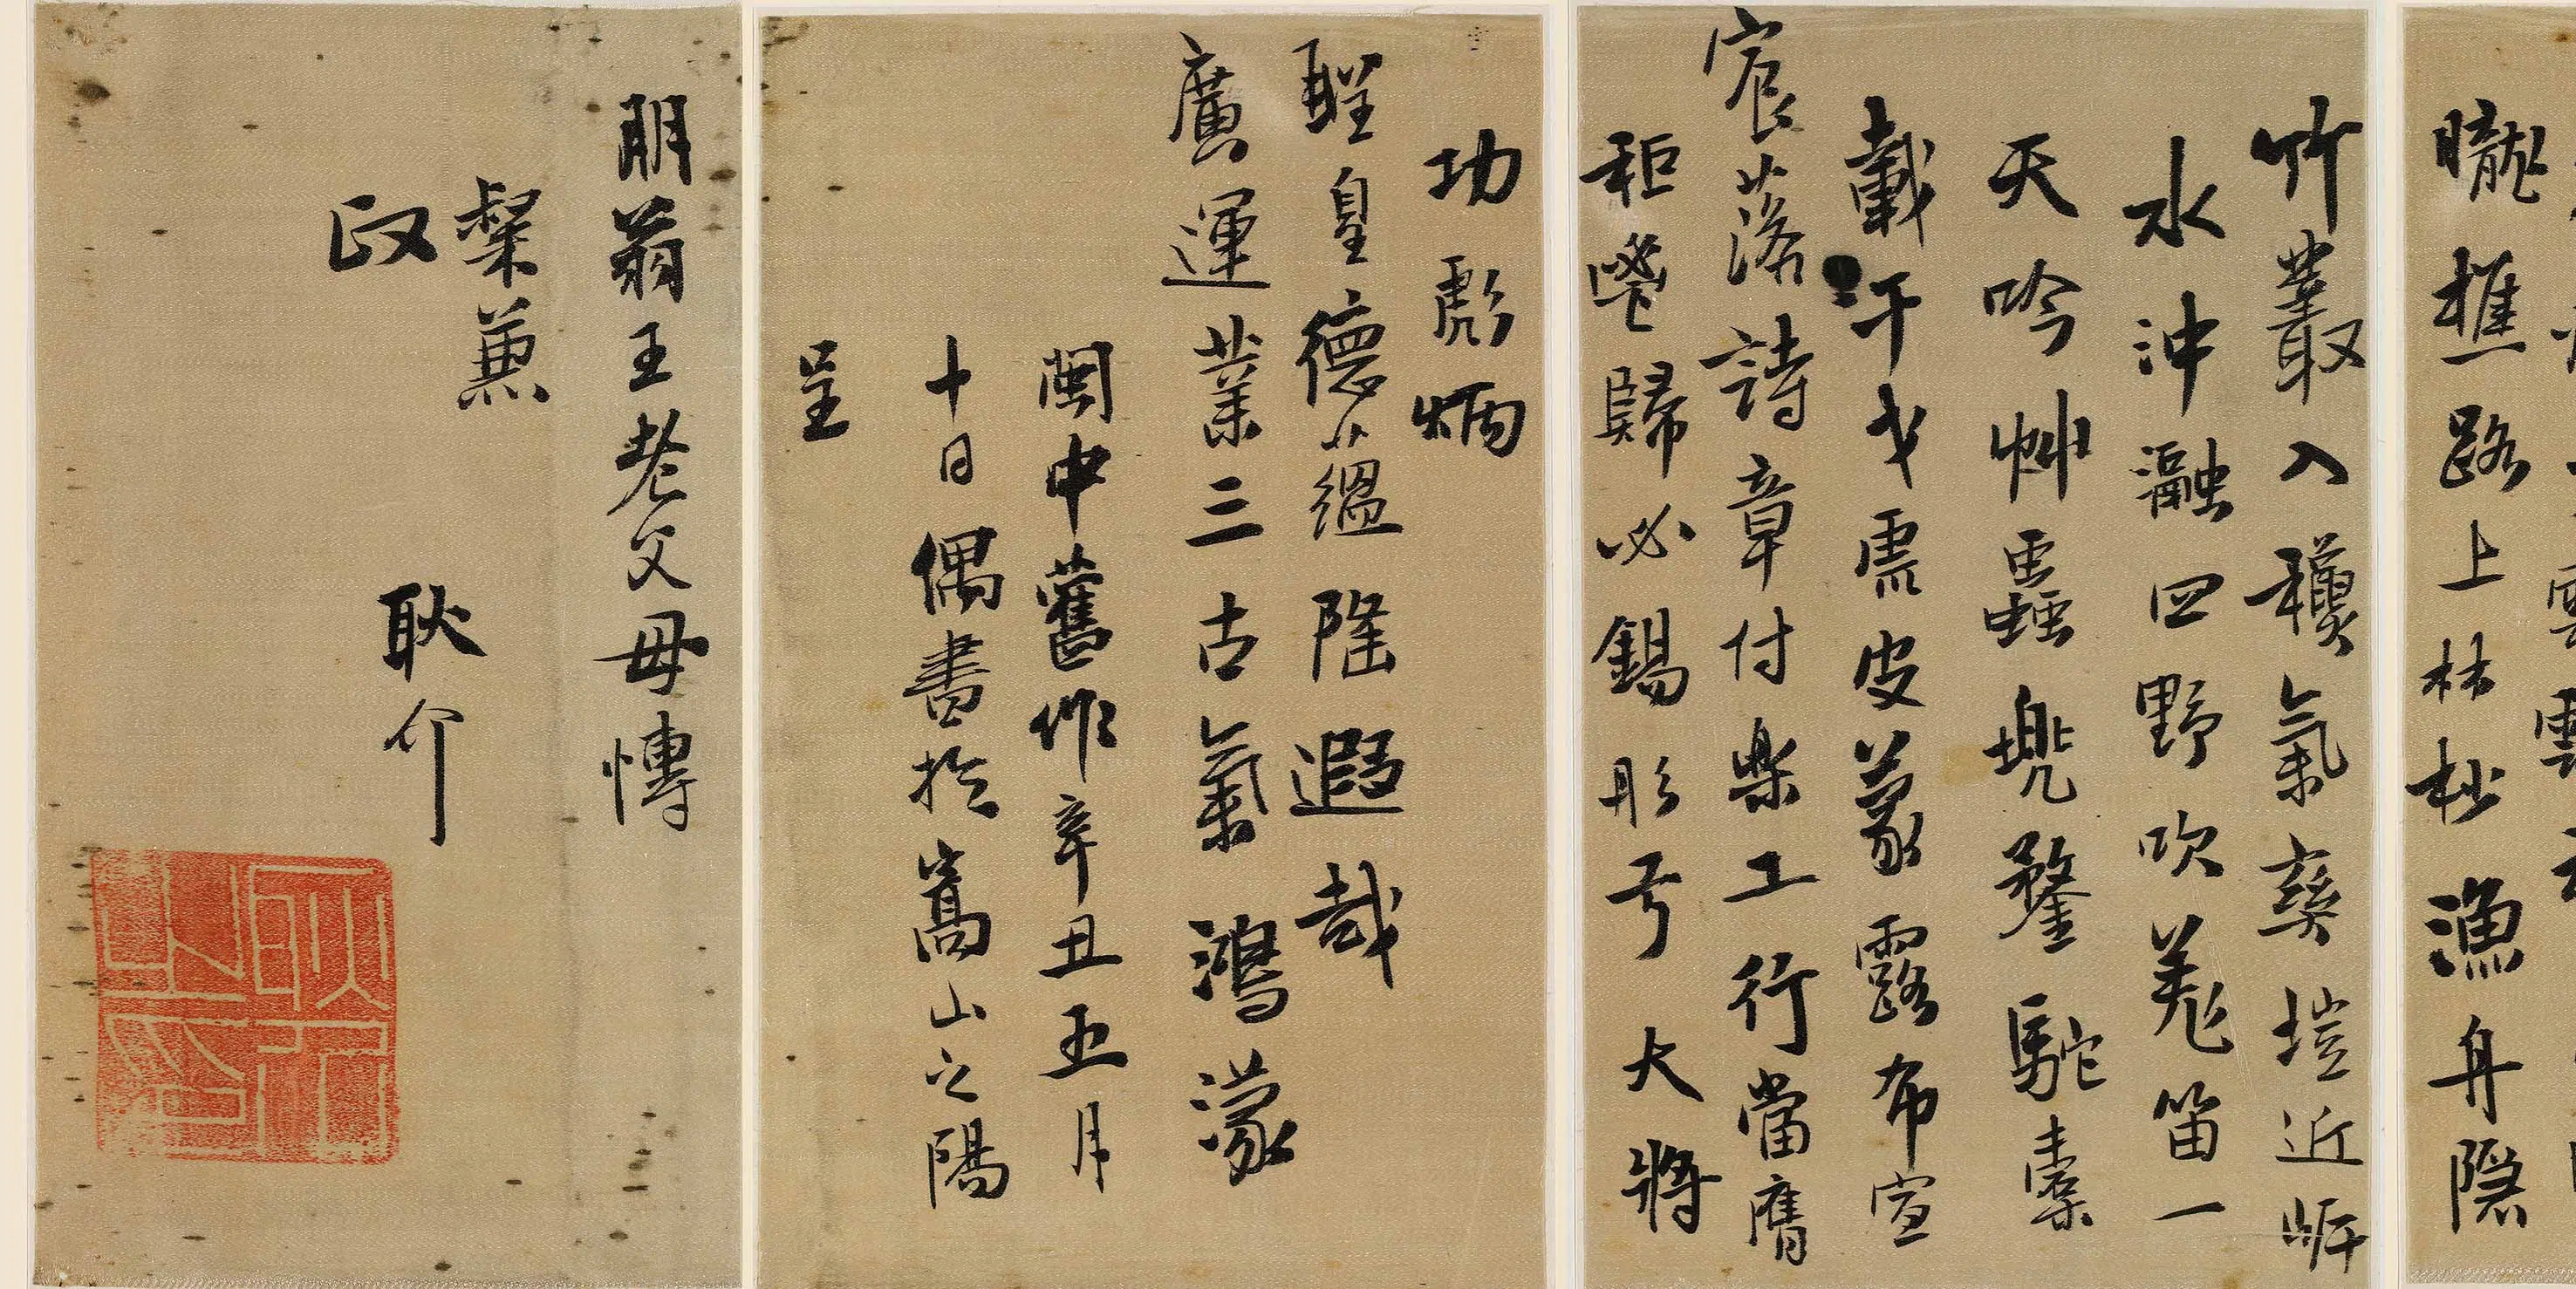 朧樵路上林杪漁舟隱
竹叢入穫氣葵塏近岍
水沖瀜四野吹羗笛一
天吟艸蟲兜鍪駝橐
載干戈虎皮蒙露布宣
宸落詩章付樂工行當膺
秬鬯歸必錫彤弓大將
功彪炳
聖皇德蘊隆遐哉
廣運業三古氣鴻濛
閩中舊作辛丑五月
十日偶書於嵩山之陽
呈
朋翁王老父母慱
粲兼
政
耿介
耿介之印